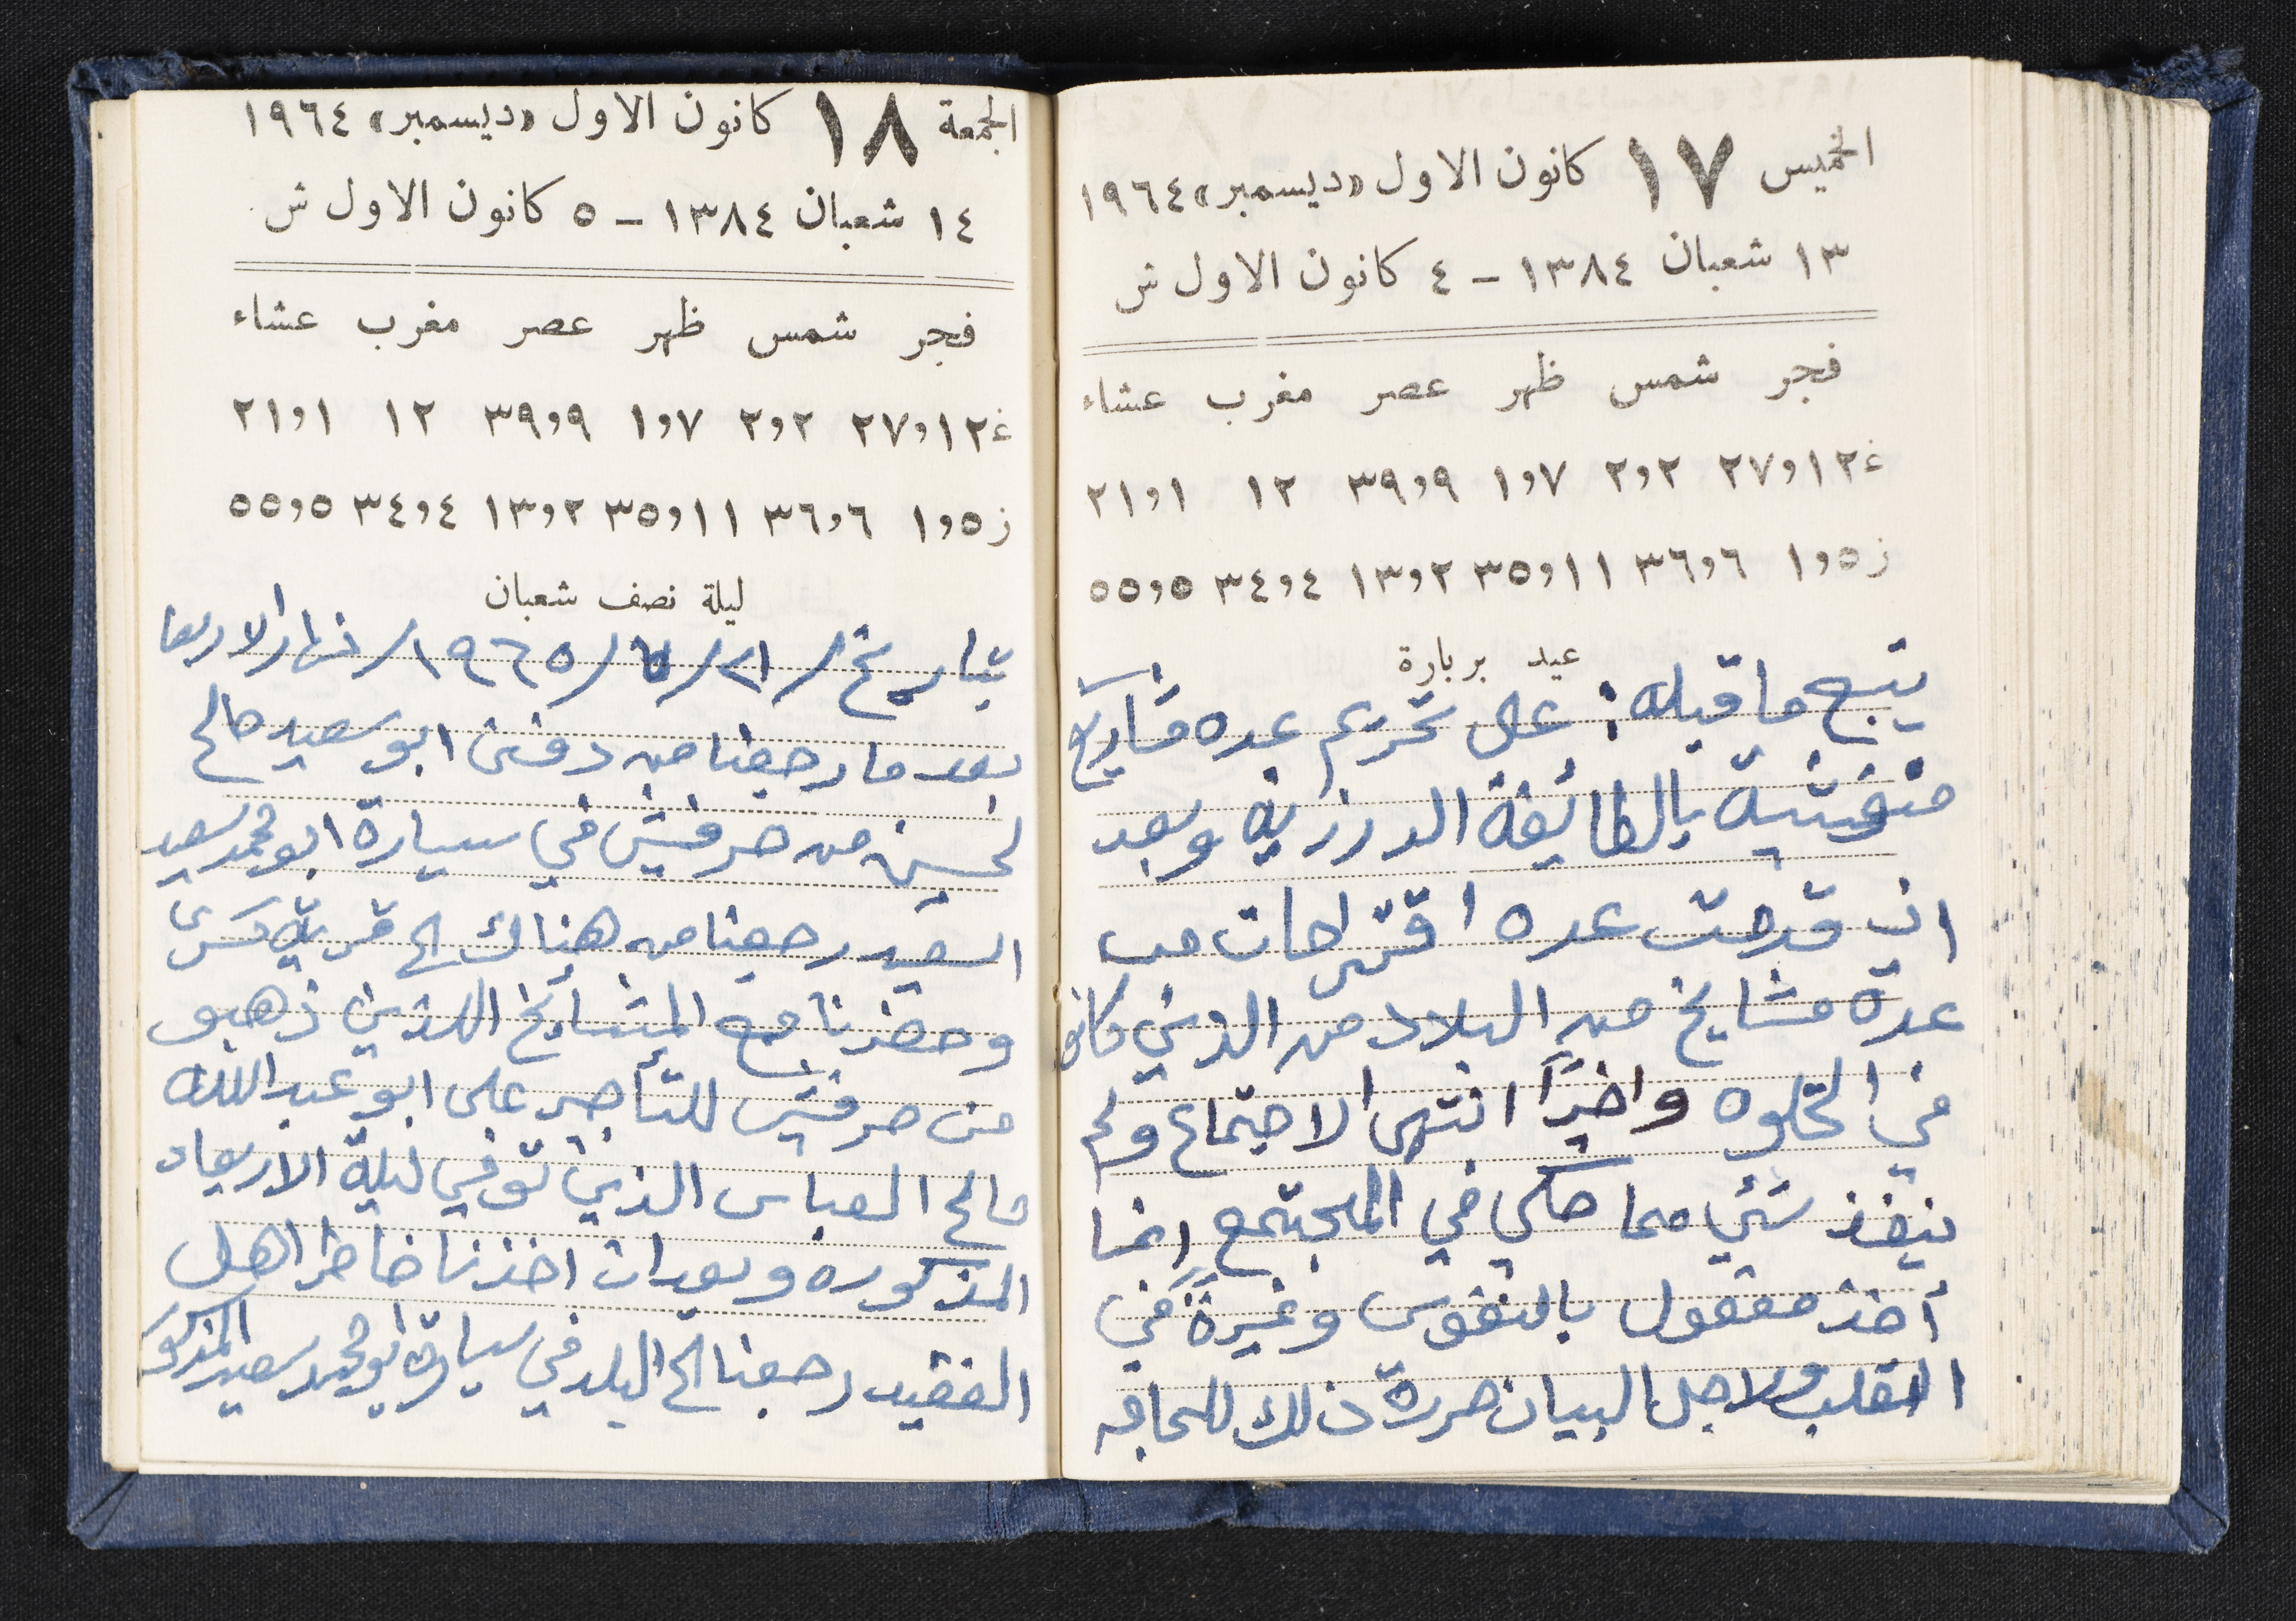 الخميس ١٧ كانون الاول «ديسمبر» ١٩٦٤
١٣ شعبان ١٣٨٤ - ٤ كانون الاول ش
فجر شمس ظهر عصر مغرب عشاء
غ ١٢و٢٧ ٢و٢ ٧و١ ٩و٣٩ ١٢ ١و٢١
ز ٥و١ ٦و٣٦ ١١و٣٥ ٢و١٣ ٤و٣٤ ٥و٥٥
عيد بربارة
يتبع ما قبله: على تحريم عده مشاريع
متفشيه بالطائفة الدرزيه وبعد
ان قدمت عده اقتراحات من
عدة مشايخ من البلاد من الذين كانو
في الخلوه واخيرًا انتهى الاجتماع ولم
ينفذ شئي مما حكي في المجتمع انما
أخذ مفعول بالنفوس وغيرةً في
القلب ولاجل البيان حررة ذلك للحاجه
الجمعة ١٨ كانون الاول «ديسمبر» ١٩٦٤
١٤ شعبان ١٣٨٤ - ٥ كانون الاول ش
فجر شمس ظهر عصر مغرب عشاء
غ ١٢و٢٧ ٢و٢ ٧و١ ٩و٣٩ ١٢ ١و٢١
ز ٥و١ ٦و٣٦ ١١و٣٥ ٢و١٣ ٤و٣٤ ٥و٥٥
ليلة نصف شعبان
بتاريخ / ٢١ / / ١٩٦٥ / نهار الاربعا
بعد ما رجعنا من دفن ابو سعيد صالح
لحسين من حرفيش في سيارة ابو محمد سعيد
السعيد رجعنا من هناك الى قرية كسرى
وحضرنا جمع المشايخ اللذين ذهبو
من حرفيش للتأجير على ابو عبد الله
صالح العباس الذين توفي ليلة الاربعاء
المذكوره وبعدان اخذنا خاطر اهل
الفقيد رجعنا الى البلد في سيارة ابو محمد سعيد المذكور